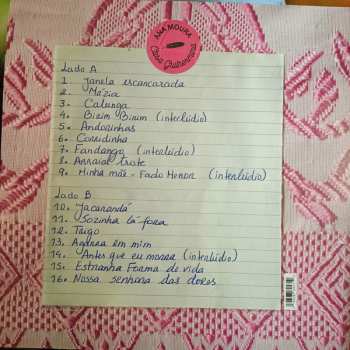 ANA MOURA
Casa Guilhermina
Lado A
1. Janela escancarada
2. Mázia
3. Calunga
4. Birim Birim (interlúdio)
5. Andorinhas
6. Corridinha
7. Fandango (interlúdio)
8. Arraial triste
9. Minha mãe - Fado Menor (interlúdio)
Lado B
10. Jacarandá
11. Sozinha lá fora
12. Tágo
13. Agarra em mim
14. Antes que eu morra (interlúdio)
15. Estranha Forma de vida
16. Nossa senhora das dores